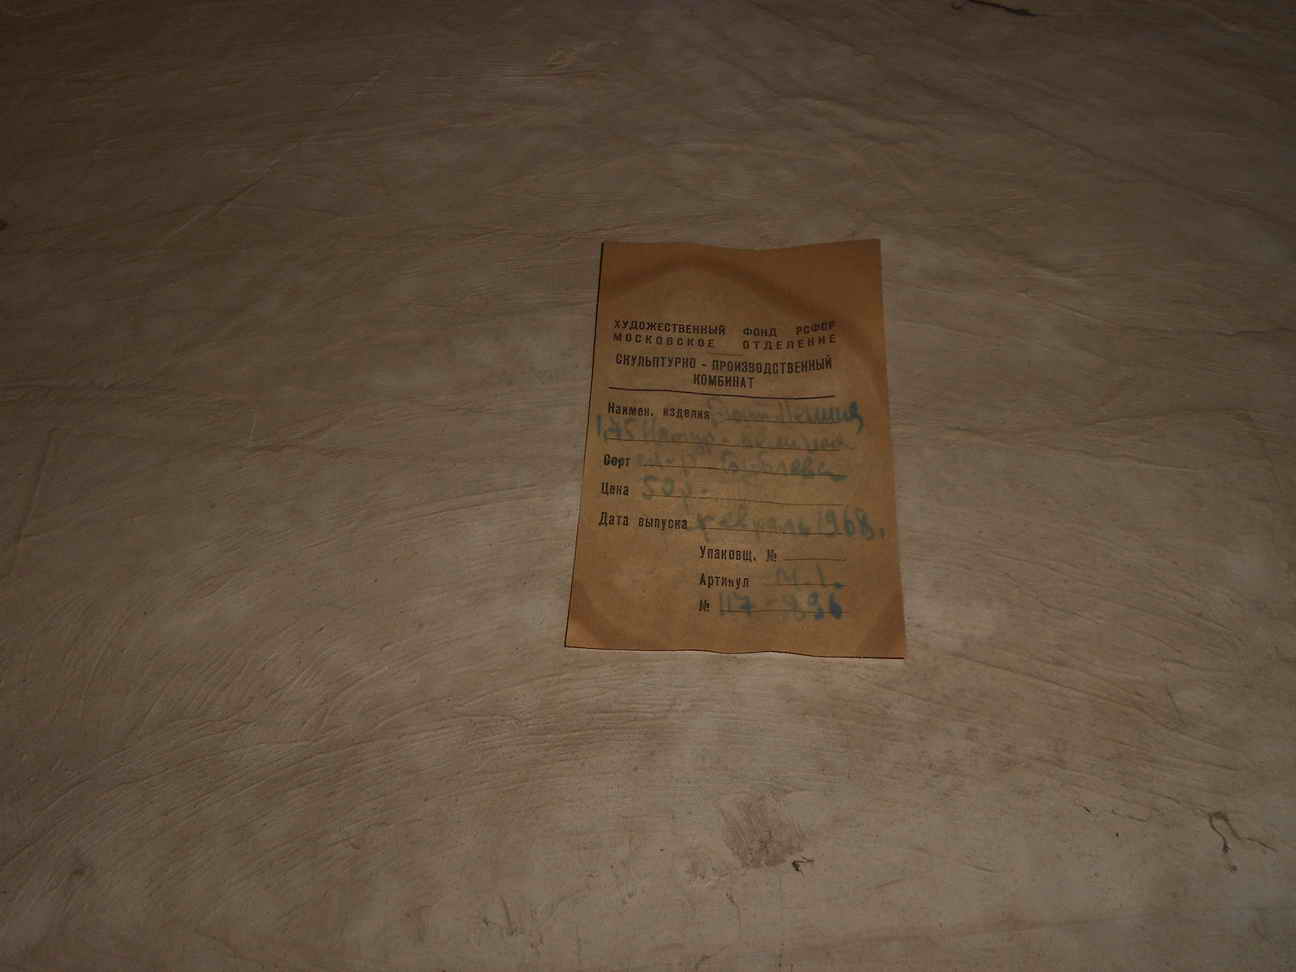 ХУДОЖЕСТВЕННЫЙ ФОНД РСФСР
МОСКОВСКОЕ ОТДЕЛЕНИЕ
СКУЛЬПТУРНО - ПРОИЗВОДСТВЕННЫЙ
КОМБИНАТ
Наимен. изделия Ленина
1,75
Сорт
Цена 50р.
Дата выпуска февраль 1968г.
Упаковщ. №
Артикул
№ 117